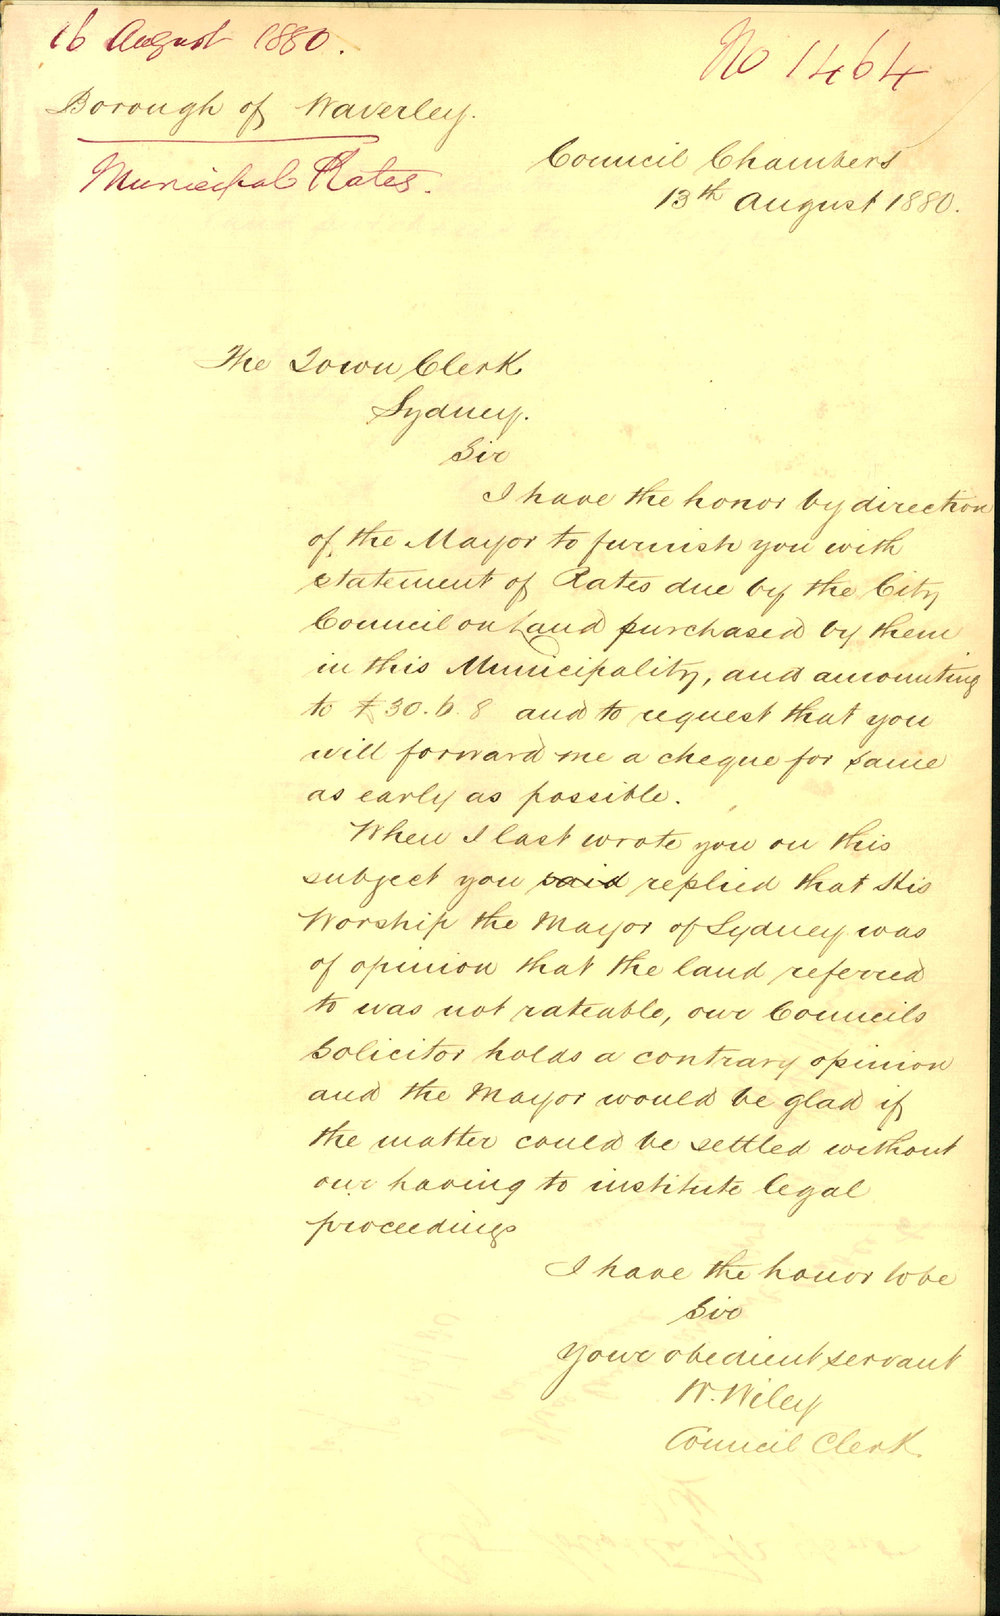 16 August 1880.
No 1464
Borough of Waverley.
Municipal Rates.
Council Chambers
13th August 1880.
The Town Clerk
Sydney.
Sir
I have the honor by direction
of the Mayor to furnish you with
statement of Rates due by the City
Council on Land purchased by them
in this Municipality, and amounting
to £30.6.8 and to request that you
will forward me a cheque for same
as early as possible.
When I last wrote you on this
subject you said replied that His
Worship the Mayor of Sydney was
of opinion that the land referred
to was not rateable, our Councils
Solicitor holds a contrary opinion
and the Mayor would be glad if
the matter could be settled without
our having to institute legal
proceedings
I have the honor to be
Sir
Your obedient servant
W. Wiley
Council Clerk